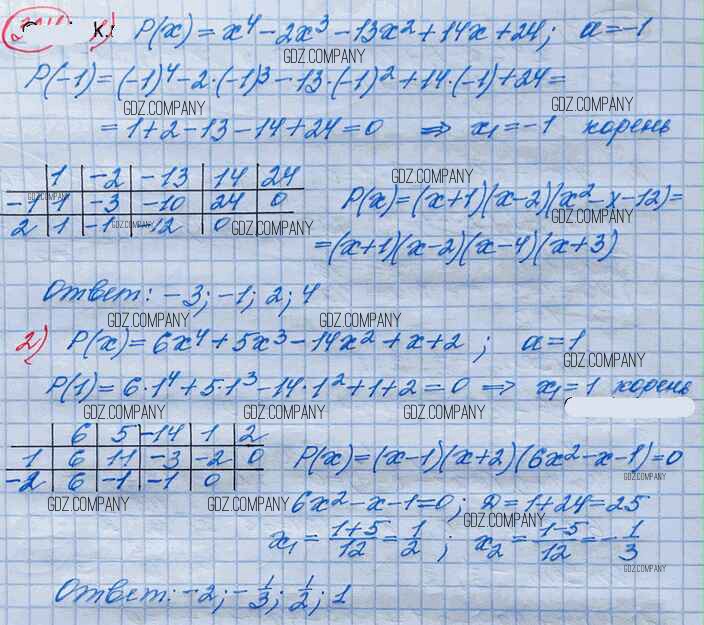 1) P(x) = x⁴ - 2x³ - 13x² + 14x + 24; a = -1
GDZ.COMPANY
P(-1) = (-1)⁴ - 2·(-1)³ - 13·(-1)² + 14·(-1) + 24 =
GDZ.COMPANY GDZ.COMPANY
= 1 + 2 - 13 - 14 + 24 = 0 ⇒ x₁ = -1 корень
GDZ.COMPANY
1 | -2 | -13 | 14 | 24
-1 | 1 | -3 | -10 | 24 | 0
GDZ.COMPANY
2 | 1 | -1 | -12 | 0
GDZ.COMPANY GDZ.COMPANY
P(x) = (x+1)(x-2)(x² - x - 12) =
GDZ.COMPANY
= (x+1)(x-2)(x-4)(x+3)
Ответ: -3; -1; 2; 4
GDZ.COMPANY GDZ.COMPANY
2) P(x) = 6x⁴ + 5x³ - 14x² + x + 2; a = 1
GDZ.COMPANY
P(1) = 6·1⁴ + 5·1³ - 14·1² + 1 + 2 = 0 ⇒ x₁ = 1 корень
GDZ.COMPANY GDZ.COMPANY GDZ.COMPANY
6 | 5 | -14 | 1 | 2
1 | 6 | 11 | -3 | -2 | 0
-2 | 6 | -1 | -1 | 0
P(x) = (x-1)(x+2)(6x² - x - 1) = 0
GDZ.COMPANY
GDZ.COMPANY GDZ.COMPANY
6x² - x - 1 = 0; D = 1 + 24 = 25
GDZ.COMPANY
x₁ = (1+5)/12 = 1/2; x₂ = (1-5)/12 = -1/3
GDZ.COMPANY
Ответ: -2; -1/3; 1/2; 1